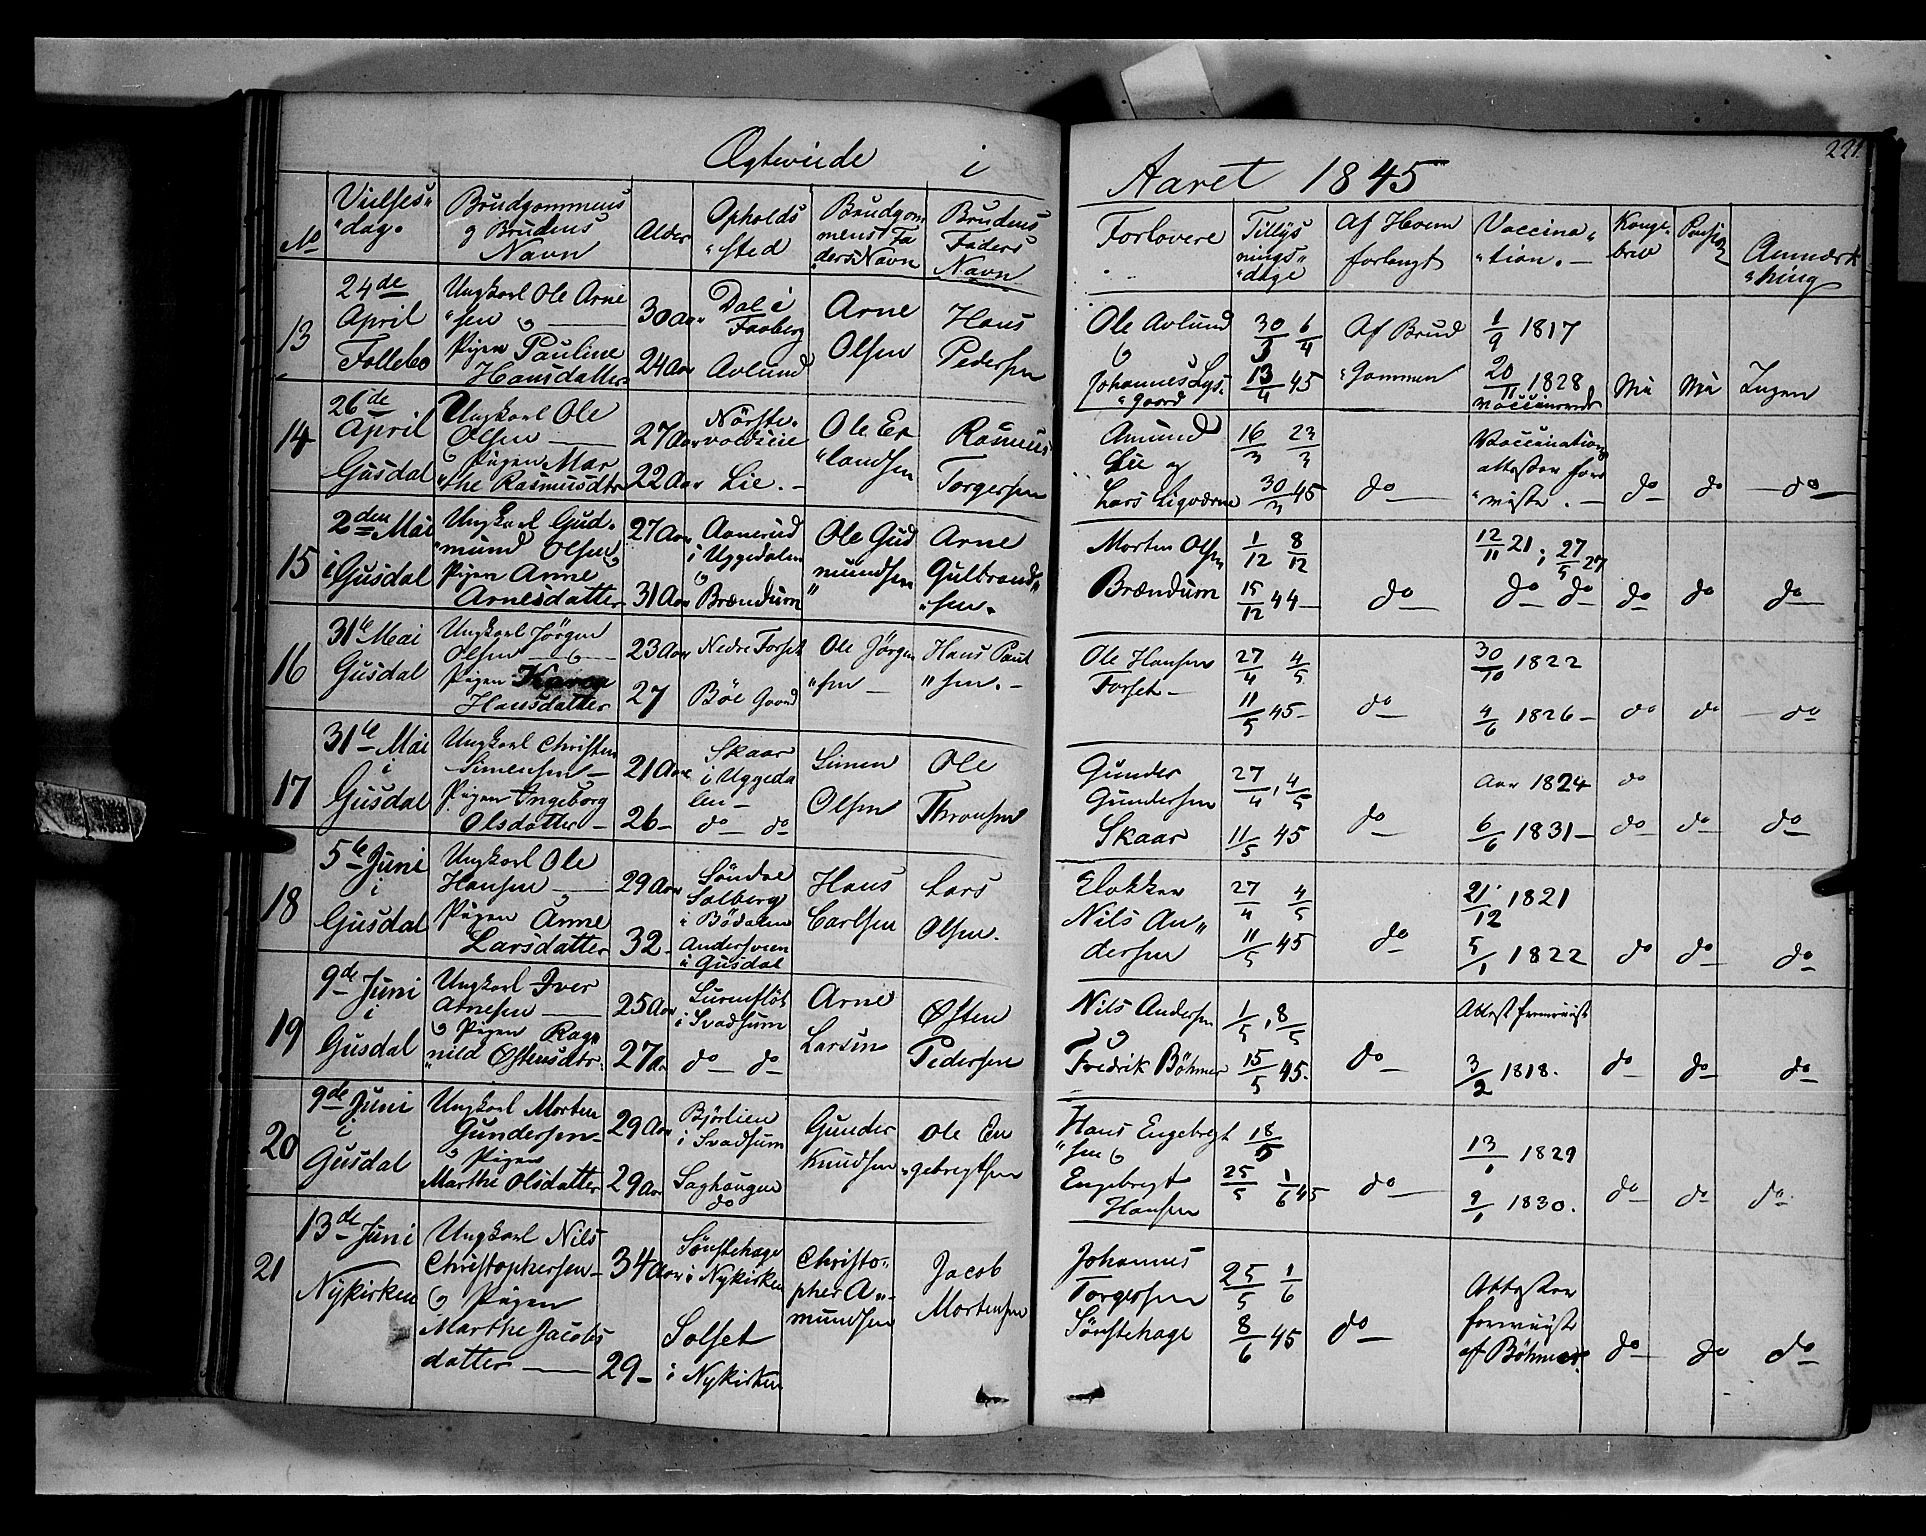 Ægteviede i Aaret 1845
221
No
Vielses-
"dag.
Brudgommens
og Brudens
Navn
Alder
Opholds
"sted
Brudgom
mens Fa
ders Navn
Brudens
Faders
Navn
Forlovere
Tillys
nings"
"dage
Af Hvem
forlangt
Vaccina"
"tion. -
Konge-
brev
Anmærk
"ning
13
24de
April
Follebo
Ungkarl Ole Arne
"sen og
Pigen Pauline
Hansdatter
30 Aar
24 Aar
Dal i
Faaberg
Avlund
Arne
Olsen
Hans
Pedersen
Ole Avlund
og
Johannes Lys-
"gaard
30/3 6/4
13/4 45
Af Brud
"gommen
1/9 1817
20/11 1828
vaccinerede
Ingen
14
26de
April
Gusdal
Ungkarl Ole
Olsen
og Pigen Mar
"the Rasmusdtr
27 Aar
22 Aar
Lie. -
Ole Er
"landsen
Rasmus
Torgersen
Amund
Lie og
Lars
16/3 23/3
30/3 45
do
Vaccinations
attester fore
"viste. -
do do do
15
2den Mai
i Gusdal
Ungkarl Gud-
"mund Olsen og
Pigen Anne
Arnesdatter
27 Aar
31 Aar
i Uggedalen
og
Brændum
Ole Gud
mundsen
Arne
Gulbrand"
"sen.
Morten Olsen
Brændum
1/12 8/12
15/12 44
do
12/11 21; 27/5 27
do do do do do
16
31te Mai
Gusdal
Ungkarl Jørgen
Olsen og
Pigen Karen
Hansdatter
23 Aar
27
Nedre Forset
Böe Gaard
Ole Jörgen
"sen -
Hans Paul
"sen. -
Ole Hansen
Forset -
27/4 4/5
11/5 45-
do
30/10 1822
4/6 1826-
do do do
17
31te Mai
i
Gusdal
Ungkarl Christen
Simensen -
Pigen Ingeborg
Olsdatter -
21 Aar
26-
Skaar
i Uggeda
len -
do do
Simen
Olsen
Ole
Thronsen
Gunder
Gundersen
Skaar
27/4, 4/5
11/5 45
do
Aar 1824
6/6 1831-
do
do do do
18
5te Juni
i
Gusdal
Ungkarl Ole
Hansen og
Pigen Anne
Larsdatter
29 Aar
32-
Söndre
Solberg
i Bödalen
i Gusdal
Hans
Carlsen
Lars
Olsen.
Klokker
Nils An"
dersen
27/4 4/5
11/5 45
do
21/12 1821
5/1 1822
do do do
19
9de Juni
i
Gusdal
Ungkarl Iver
Arnesen
og Pigen Rag
"nild Østensdtr.
25 Aar
27 Aa
i Svadsum
do do
Arne
Larsen
Østen
Pedersen
Nils Andersen
og
Fredrik Böhmer
1/5, 8/5
15/5 45.
do
Attest fremviist
3/2 1818.
do do do
20
9de Juni
i
Gusdal
Ungkarl Morten
Gundersen
og Pigen
Marthe Olsdatter
29 Aar
29 Aar
Bjørlien
i Svadsum
Saghougen
do
Gunder
Knudsen
Ole En
"gebregtsen
Hans Engebregt
"sen og
Engebregt
Hansen
18/5
25/5 1/6 45
do
13/1 1829
9/1 1830.
do do do.
21
13de Juni
Nykirken
Ungkarl Nils
Christophersen
og Pigen
Marthe Jacobs
datter
34 Aar
29-
Sönstehage
i Nykirken
Solset
i Nykirken
Christo-
pher A"
mundsen
Jacob
Mortensen
Johannes
Torgersen
Sönstehage
25/5 1/6
8/6 45
do
Attester
fremviist
af Böhmer
do do do